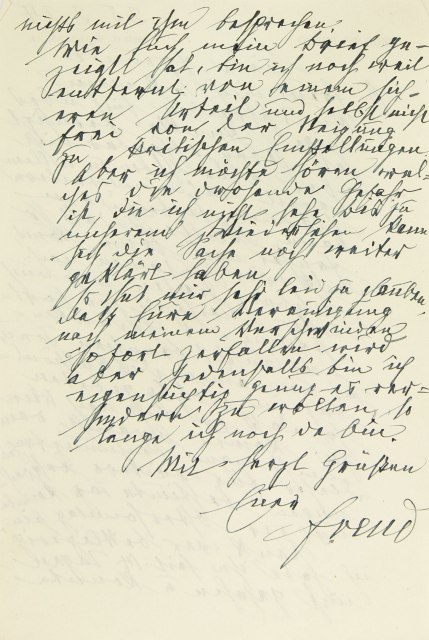 nichts mit ihm besprochen.
Wie Euch mein Brief ge-
zeigt hat, bin ich noch weit
entfernt von einem sich-
eren Urteil und selbst nicht
frei von der Neigung
zu kritischen Einstellungen.
Aber ich möchte hören wel-
ches die drohende Gefahr
ist, die ich nicht sehe. Bis zu
unserem Wiedersehen kann
sich die Sache noch weiter
geklärt haben.
Es thut mir sehr leid zu glauben,
dass Eure Vereinigung
nach meinem Verschwinden
sofort zerfallen wird
aber jedenfalls bin ich
eigensüchtig genug es ver-
hindern zu wollen, so
lange ich noch da bin.
Mit herzl Grüßen
Euer
Freud